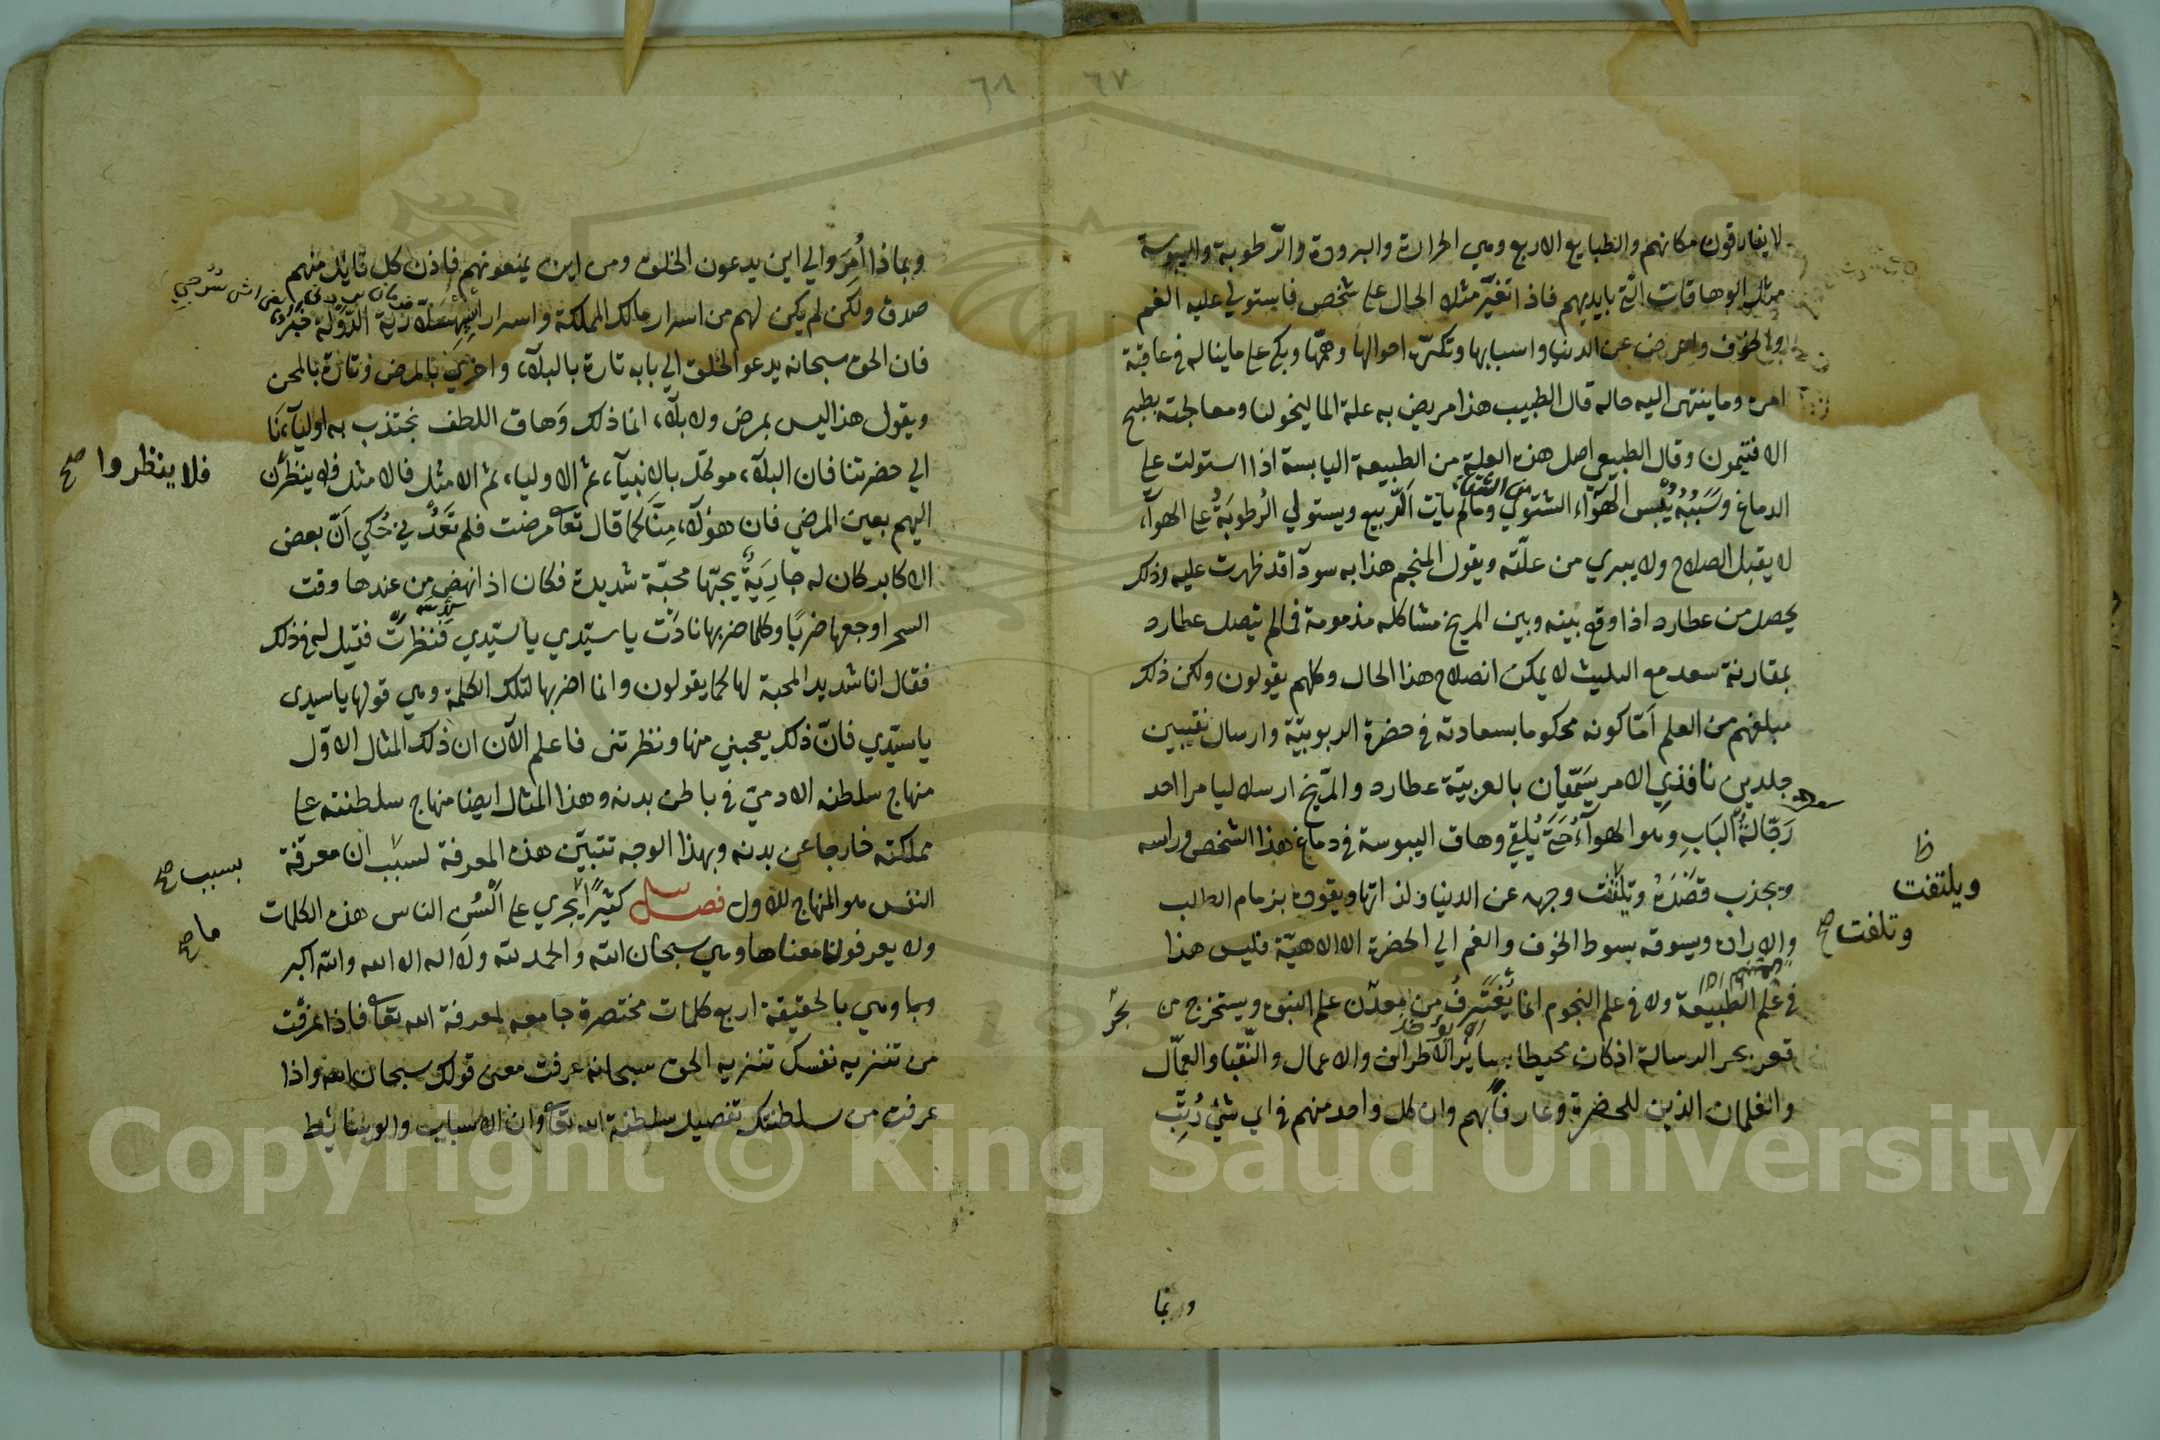 ٦٧
لا يفارقون مكانهم والطبايع الاربع وهي الحرارة والبرودة والرّطوبة واليبوسة
مثل الوهاقات التي بايديهم فاذا تغيّر مثلا الحال على شخص فاستولي عليه الغم
والخوف واعرض عن الدنيا واسبابها وتكرّه احوالها وهمّها وبكي على ما يناله في عاقبة
امره وما ينتهي اليه حاله قال الطبيب هذا مريض به علة الماليخوليا ومعالجته بطبيخ
الافتيمون وقال الطبيعي اصل هذه العلة من الطبيعة اليابسة اذا استولت على
الدماغ وسَبَبُهُ يُبْس الهوآء الشتوي وما لم يات الربيع ويستولي الرُطوبَةُ على الهوآء
لا يقبل الصلاح ولا يبري من علّته ويقول المنجم هذا به سودآ قد ظهرت عليه وذلك
يحصل من عطارد اذا وقع بينه وبين المريخ مشاكله مذمومة فما لم يتصل عطارد
بمقارنة سعد مع التثليث لا يمكن انصلاح هذا الحال وكلهم يقولون ولكن ذلك
مبلغهم من العلم اَمّا كونه محكوما بسعادته في حضرة الربوبيّة وارسال نقيبين
جلدين نافذي الامر يسَمّيان بالعربيّة عطارد والمرّيخ ارسلا ليامرا احد
رَجّالةُ البَابِ وهو الهوآءُ حَتّى يُلقي وهاق اليبوسة في دماغ هذا الشخص وراسه
ويجذب قصْدَهُ ويلْفت وجهه عن الدنيا ولذاتها ويقوده بزمام الطلب
والارادة ويسوقه بسوط الخوف والغم الي الحضرة الالاهيّة فليس هذا
في عْلم الطبيعة ولا في علم النجوم انما يُغتَرفُ من معدن علم النبوة ويستخرج من
قعر بحر الرسالة اذ كان محيطا بساير الاطراف والاعمال والنّقبا والعمّال
والغلمان الذين للحضرة وعارفاً بهم وان كل واحد منهم في اي شيْ رُتِّب
ظ
ويلتفت
وتلفت صح
بحْر
وربما
٦٨
وبماذا اُمِرَ والي اين يدعون الخلق ومن اين يمنعونهم فإذن كل قايل منهم
صدق ولكن لم يكن لهم من اسرار مالك المملكة و اسرار
فان الحق سبحانه يدعو الخلق الي بابه تارة بالبلآء واخري بالمرض وتارة بالمحن
ويقول هذا ليس بمرض ولا بلآء انما ذلك وَهاق اللطف نجتذب به اوليآءنَا
الي حضرتنا فان البلآء موكّل بالانبيآء ثم الاوليا، ثم الامثل فالامثل فلا ينظرن
اليهم بعين المرضي فان هؤلآء مِنّا كما قال تعا مرضت فلم تَعُدْني حُكي اَنّ بعض
الاكابر كان له جاريَةٌ يحبّها محبّة شديدة فكان اذا نهض من عندها وقت
السحر اوجعها ضربًا وكلما ضربها نادَتْ يا سيّدي يا سيّدي فنظرَتْ فقيل له في ذلك
فقال انا شديد المحبة لها كما يقولون وانما اضربها لتلك الكلمة وهي قولها يا سيدي
يا سيّدي فانّ ذلك يعجبني منها ونظرتني فاعلم الآن ان ذلك المثال الاوّل
منهاج سلطنه الادميّ في باطن بدنه وهذا المثال ايضا منهاج سلطنته على
مملكته خارجا عن بدنه وبهذا الوجه تتبيّن هذه المعرفة لسبب ان معرفة
النفس هو المنهاج للاول فصل كثيرًا يجري على الْسُن الناس هذه الكلمات
ولا يعرفون معناها وهي سبحان الله والحمد لله ولا اله الا الله والله اكبر
وبما وهي بالحقيقة اربع كلمات مختصرة جامعه لمعرفة الله تعا فاذا عرفت
من تنزيه نفسك تنزيه الحق سبحانه عرفت معني قولك سبحان الله واذا
عرفت من سلطنتك تفصيل سلطنة الله تعا وان الاسباب والوسائط
فلا ينظروا صح
بسبب صح
ما صح
Copyright © King Saud University